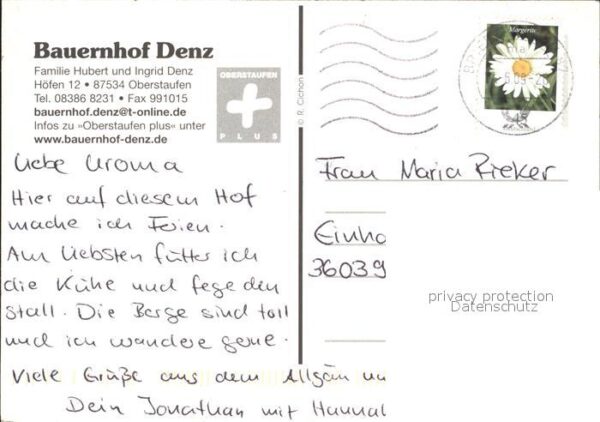 Bauernhof Denz
Familie Hubert und Ingrid Denz
Höfen 12 • 87534 Oberstaufen
Tel. 08386 8231 • Fax 991015
bauernhof.denz@t-online.de
Infos zu »Oberstaufen plus« unter
www.bauernhof-denz.de
OBERSTAUFEN
PLUS
© R. Cichon
Margerite
45
Liebe Uroma
Hier auf diesem Hof
mache ich Ferien.
Am liebsten fütter ich
die Kühe und fege den
Stall. Die Berge sind toll
und ich wandere gerne.
Viele Grüße aus dem Allgäu
Dein Jonathan mit Hannah
Frau Maria Rieker
Einho
36039
privacy protection
Datenschutz